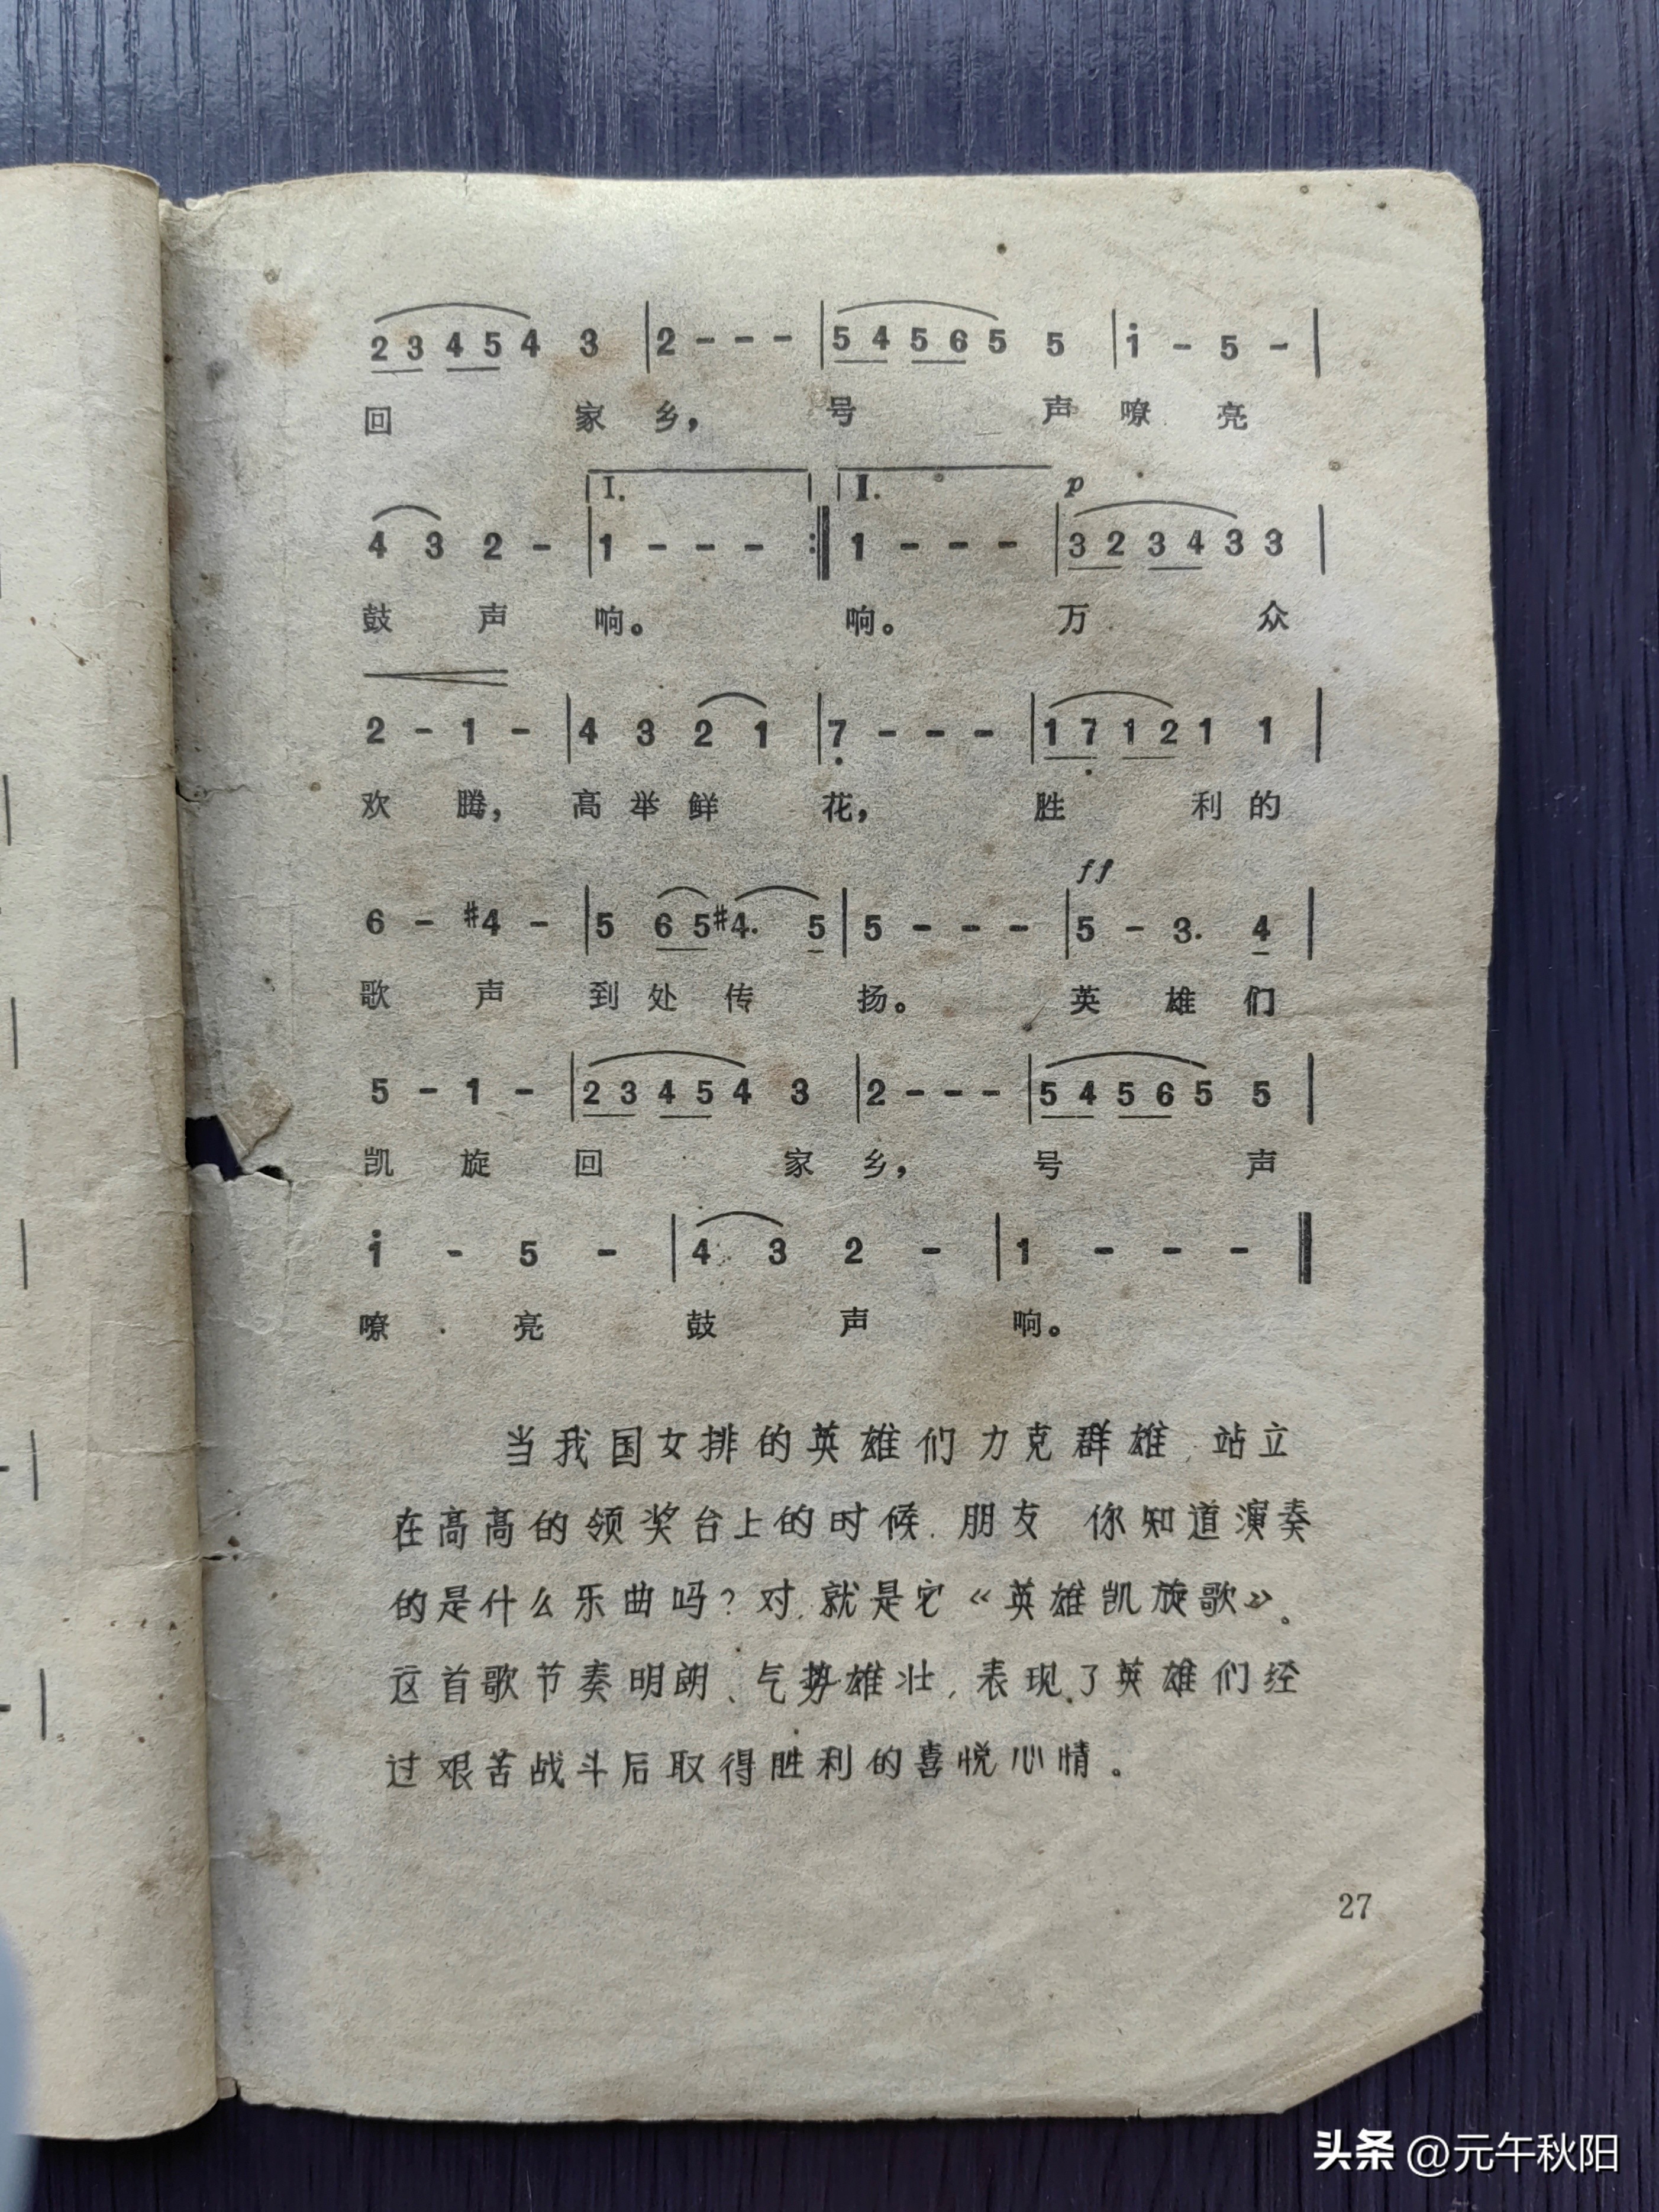 2 3 4 5 4 3 | 2 - - - | 5 4 5 6 5 5 | i - 5 - |
回 家 乡， 号 声 嘹 亮
I. I. p
4 3 2 - | 1 - - - :‖ 1 - - - | 3 2 3 4 3 3 |
鼓 声 响。 响。 万 众
2 - 1 - | 4 3 2 1 | 7 - - - | 1 7 1 2 1 1 |
欢 腾， 高 举 鲜 花， 胜 利 的
ff
6 - #4 - | 5 6 5 #4. 5 | 5 - - - | 5 - 3. 4 |
歌 声 到 处 传 扬。 英 雄 们
5 - 1 - | 2 3 4 5 4 3 | 2 - - - | 5 4 5 6 5 5 |
凯 旋 回 家 乡， 号 声
i - 5 - | 4 3 2 - | 1 - - - ‖
嘹 亮 鼓 声 响。
当我国女排的英雄们力克群雄，站立
在高高的领奖台上的时候，朋友 你知道演奏
的是什么乐曲吗？对，就是它《英雄凯旋歌》。
这首歌节奏明朗、气势雄壮，表现了英雄们经
过艰苦战斗后取得胜利的喜悦心情。
27
头条 @元午秋阳